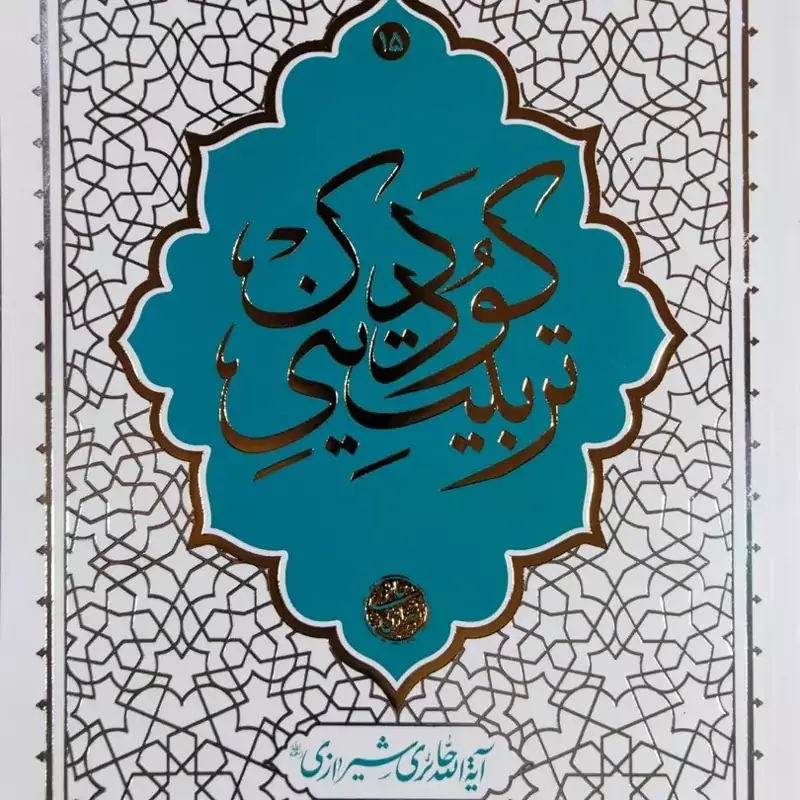 ۱۵
تربیتِ دینیِ کودک
آیة الله حائری شیرازی